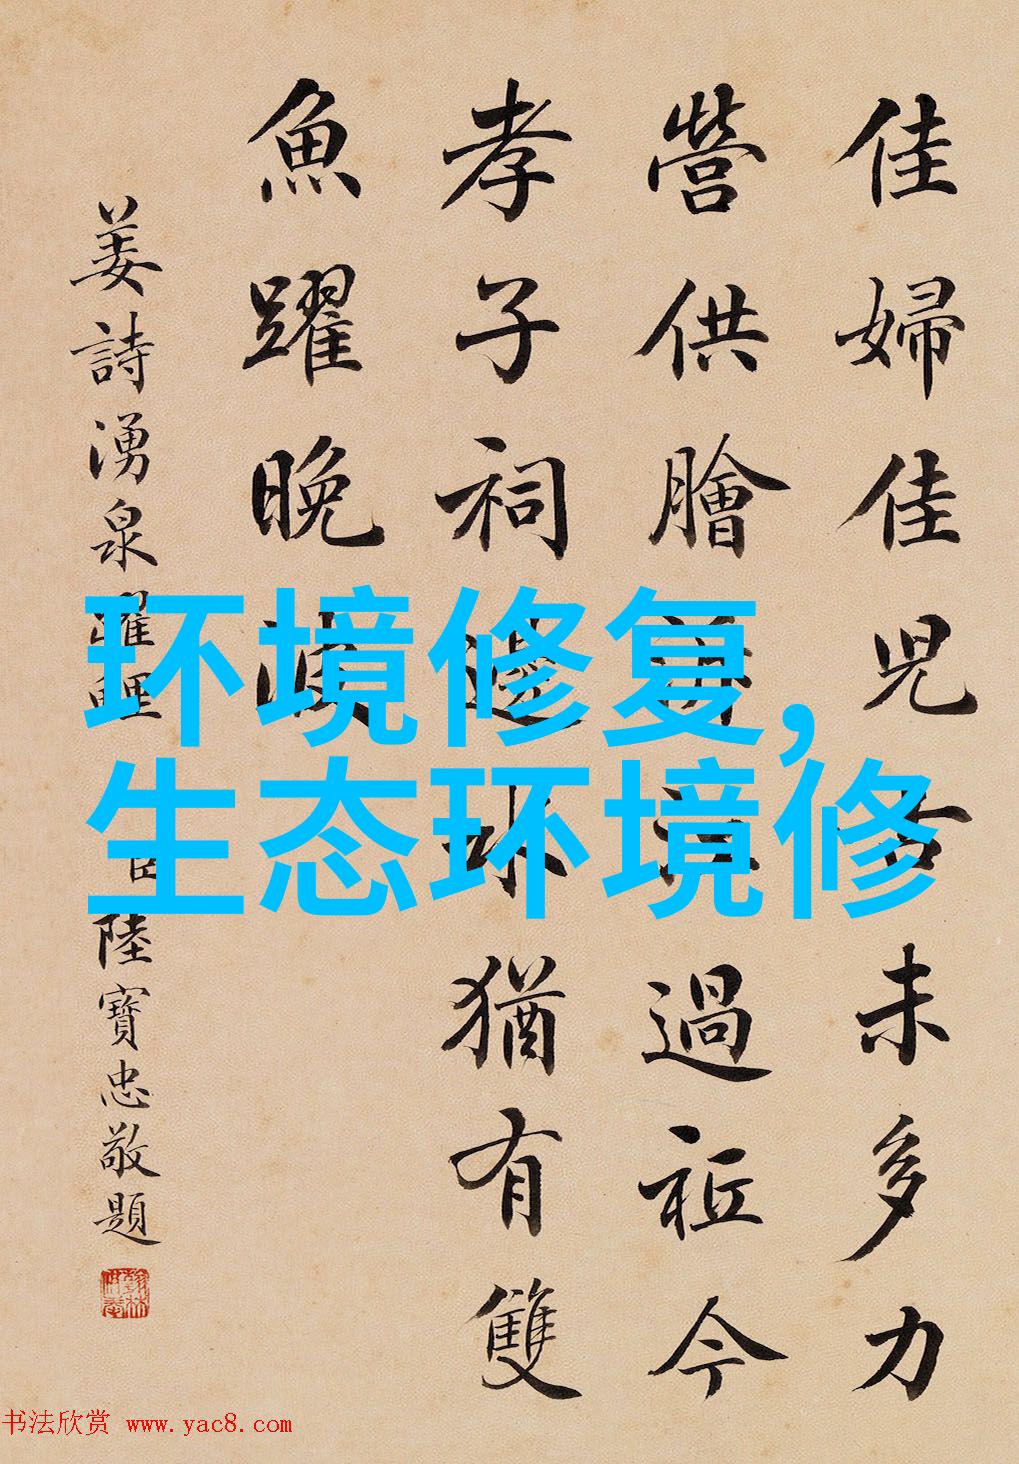 佳婦佳児古未多力
營供膾江過祗今
孝子祠邊水猶有雙
魚躍晚波
姜詩湧泉躍鯉 臣陸寶忠敬題
环境修复,
生态环境修
书法欣赏 www.yac8.com